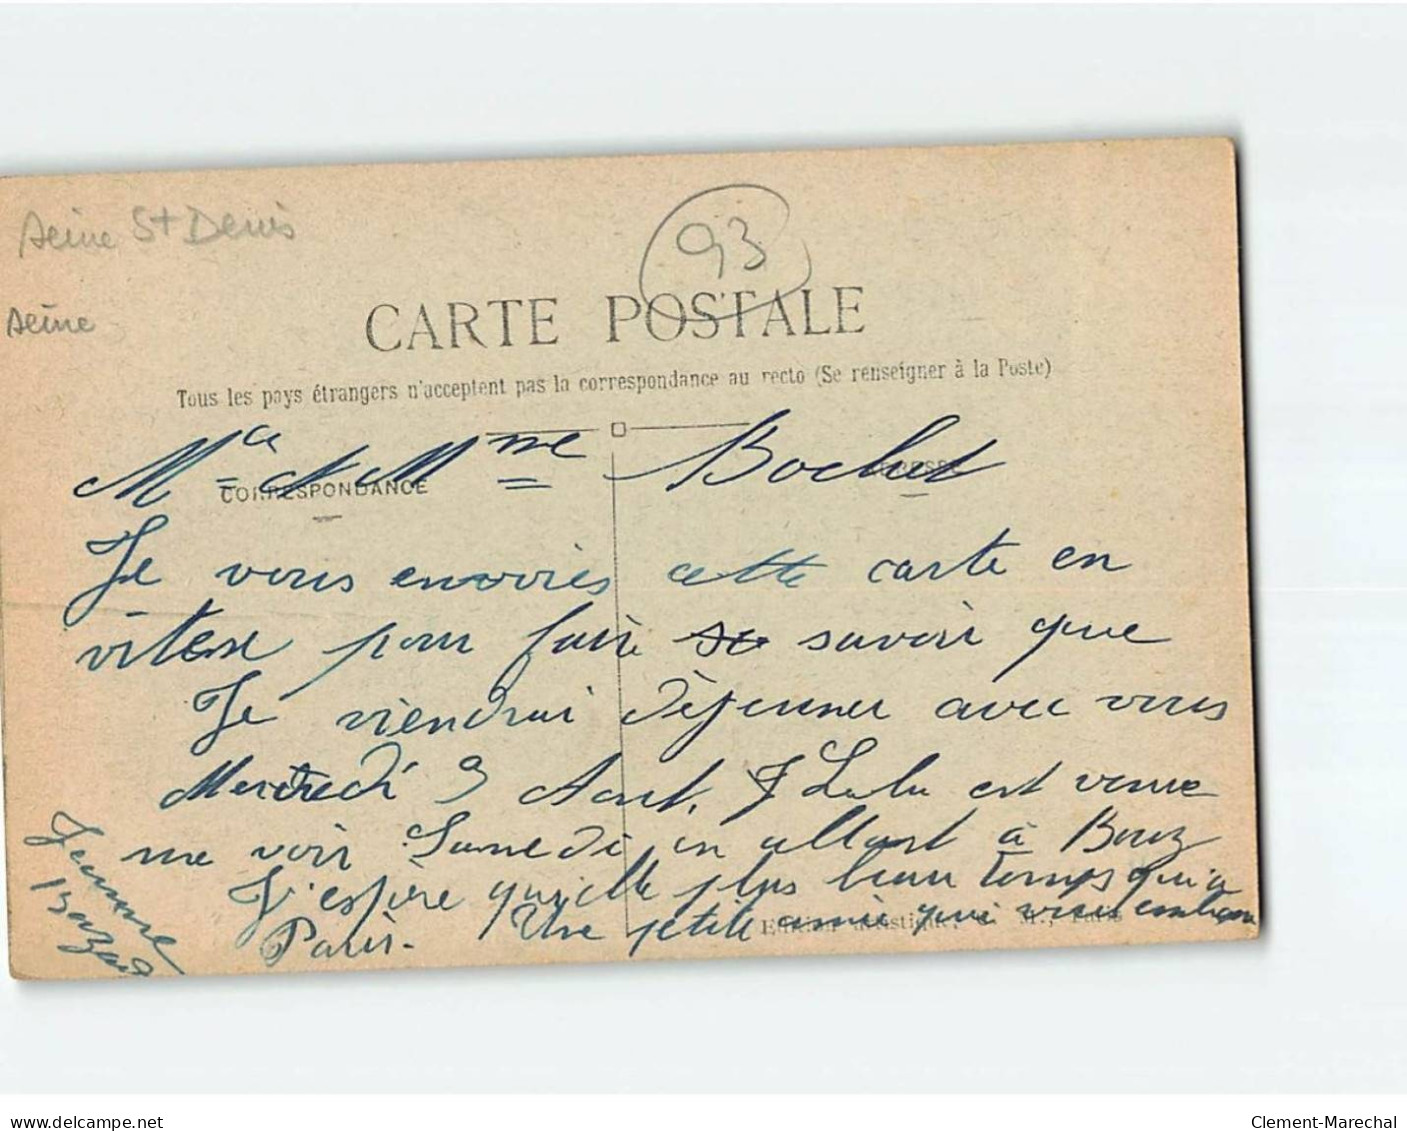 Seine St Denis
93
Seine
CARTE POSTALE
Tous les pays étrangers n'acceptent pas la correspondance au recto (Se renseigner à la Poste)
CORRESPONDANCE
ADRESSE
et Mme Bochet
Je vous envoies cette carte en
vitesse pour faire savoir que
Je viendrai déjeuner avec vous
Mercredi 9 Aout. Lulu est venue
me voir Samedi en allant à
J'espère qu'elle plus beau temps qu'a
Paris. Une petite amie qui vous embrasse
Jeanne
Edition artistique Paris
www.delcampe.net
Clement-Marechal